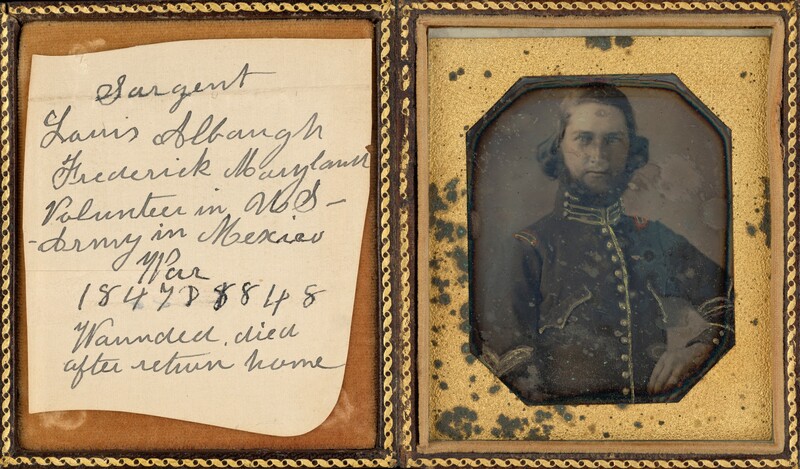 Sargent
Louis Albaugh
Frederick Maryland
Volunteer in U S-
-Army in Mexico
War
1847 & 8848
Wounded, died
after return home